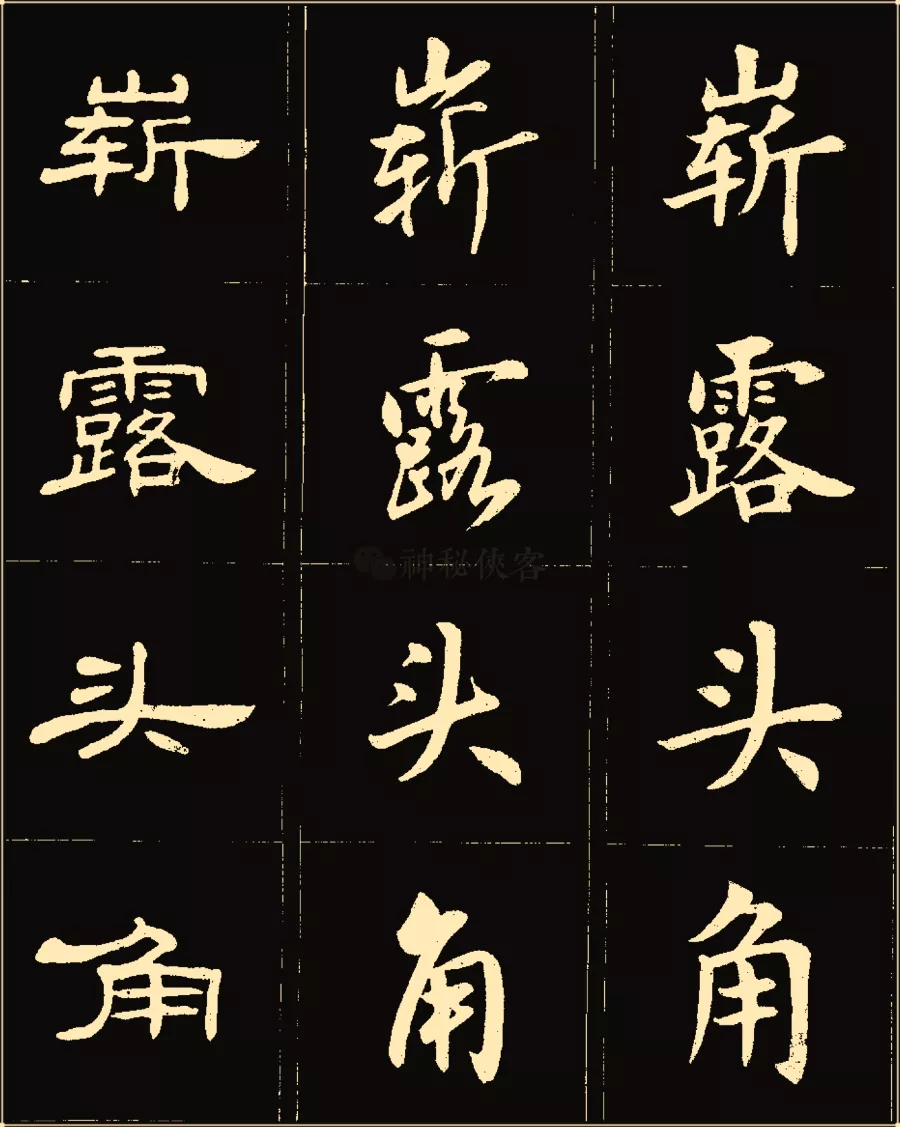 崭 崭 崭
露 露 露
神秘侠客
头 头 头
角 角 角